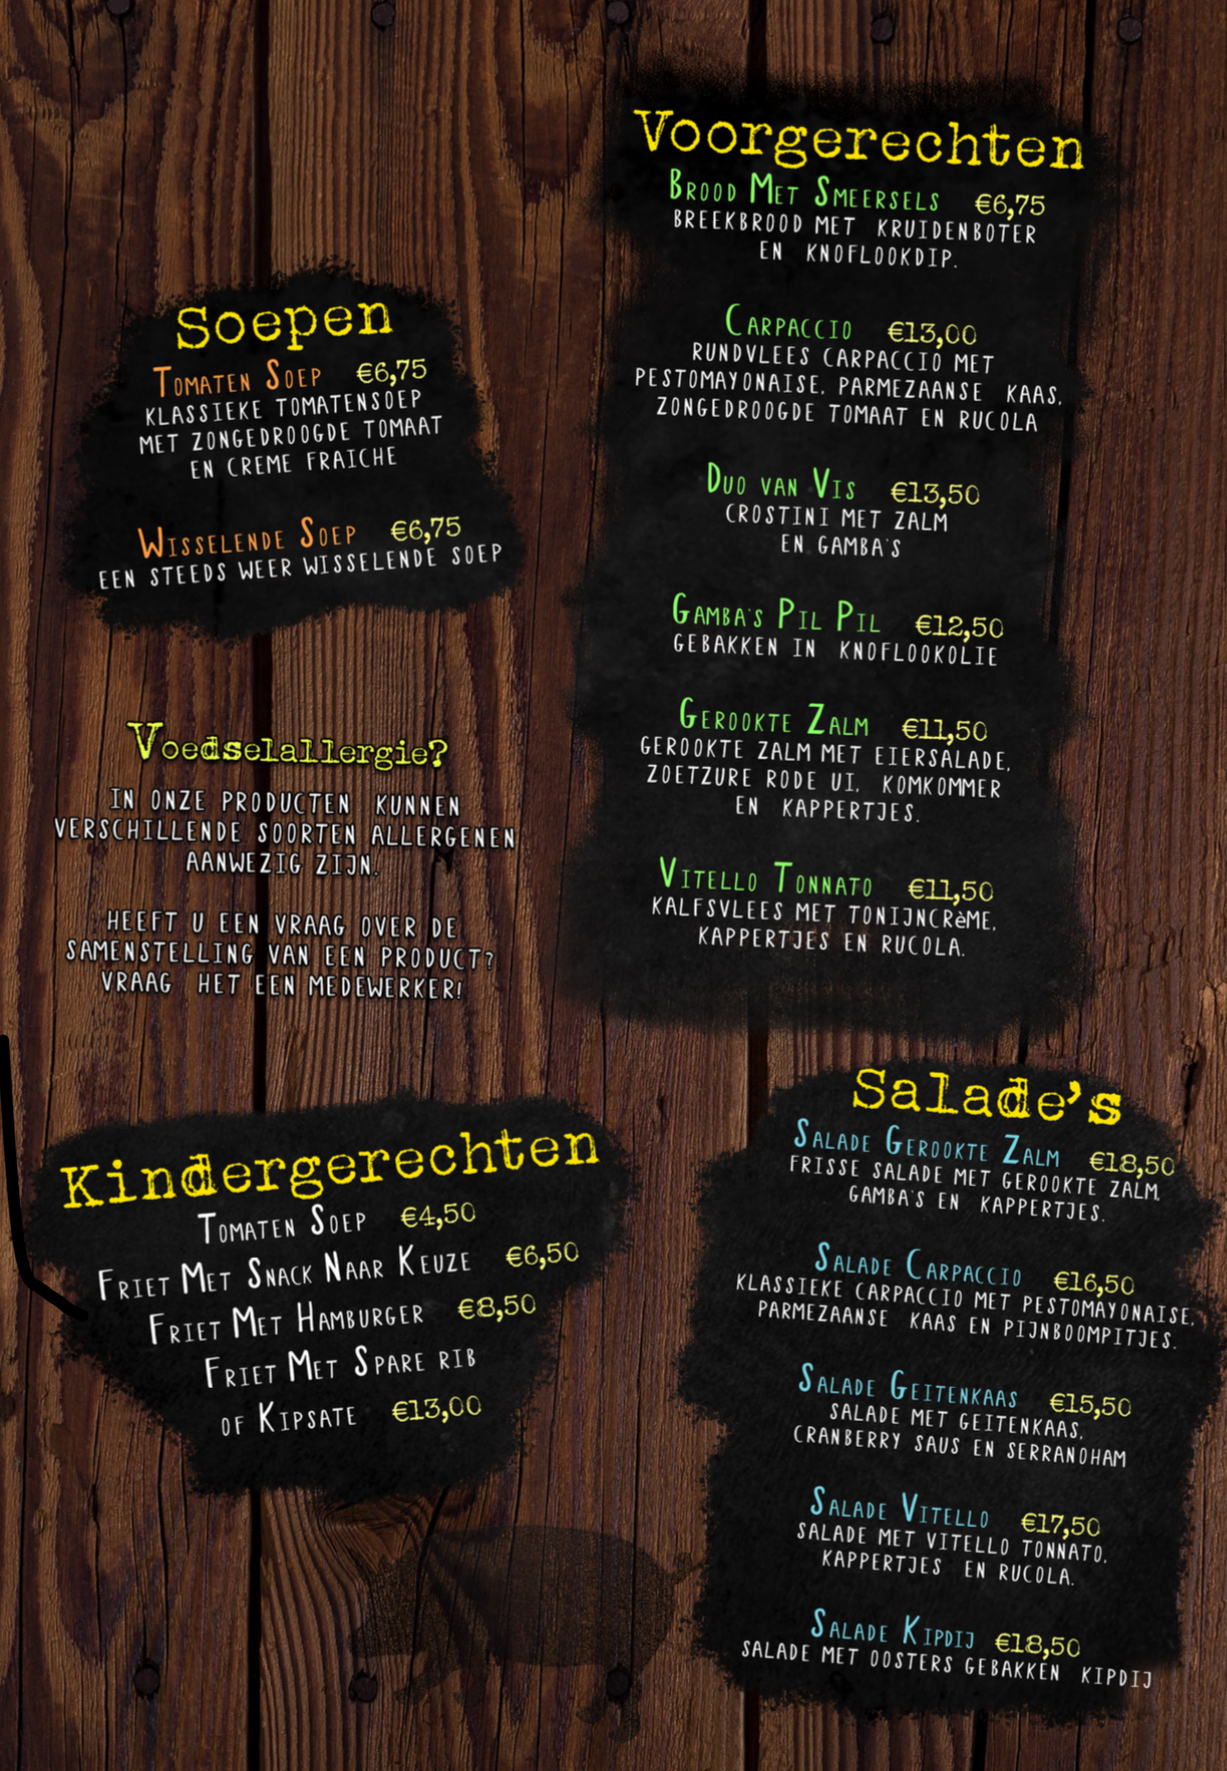 Soepen
Tomaten Soep €6,75
klassieke tomatensoep
met zongedroogde tomaat
en creme fraiche
Wisselende Soep €6,75
een steeds weer wisselende soep
Voedselallergie?
In onze producten kunnen
verschillende soorten allergenen
aanwezig zijn.
Heeft u een vraag over de
samenstelling van een product?
Vraag het een medewerker!
Kindergerechten
Tomaten Soep €4,50
Friet Met Snack Naar Keuze €6,50
Friet Met Hamburger €8,50
Friet Met Spare rib
of Kipsate €13,00
Voorgerechten
Brood Met Smeersels €6,75
breekbrood met kruidenboter
en knoflookdip.
Carpaccio €13,00
rundvlees carpaccio met
pestomayonaise, parmezaanse kaas,
zongedroogde tomaat en rucola
Duo van Vis €13,50
crostini met zalm
en gamba's
Gamba's Pil Pil €12,50
gebakken in knoflookolie
Gerookte Zalm €11,50
gerookte zalm met eiersalade,
zoetzure rode ui, komkommer
en kappertjes.
Vitello Tonnato €11,50
kalfsvlees met tonijncrème,
kappertjes en rucola.
Salade's
Salade Gerookte Zalm €18,50
frisse salade met gerookte zalm
gamba's en kappertjes.
Salade Carpaccio €16,50
klassieke carpaccio met pestomayonaise,
parmezaanse kaas en pijnboompitjes.
Salade Geitenkaas €15,50
salade met geitenkaas,
cranberry saus en serranoham
Salade Vitello €17,50
salade met vitello tonnato,
kappertjes en rucola.
Salade Kipdij €18,50
salade met oosters gebakken kipdij